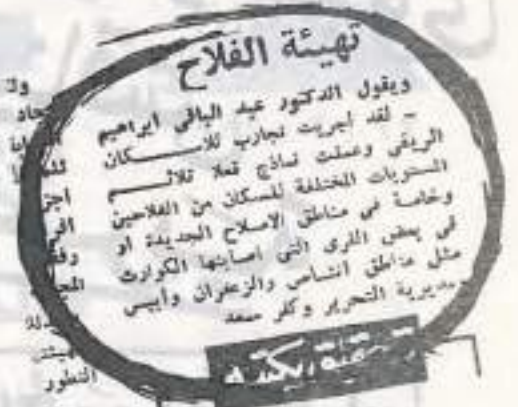 تهيئة الفلاح
ويقول الدكتور عبد الباقى ابراهيم
- لقد اجريت تجارب للاسكان
الريفى وعملت نماذج فعلا تلائم
المستويات المختلفة للسكان من الفلاحين
وخاصة فى مناطق الاصلاح الجديدة او
فى بعض القرى التى اصابتها الكوارث
مثل مناطق انشاص والزعفران وأبيس
مديرية التحرير وكفر سعد
التطور